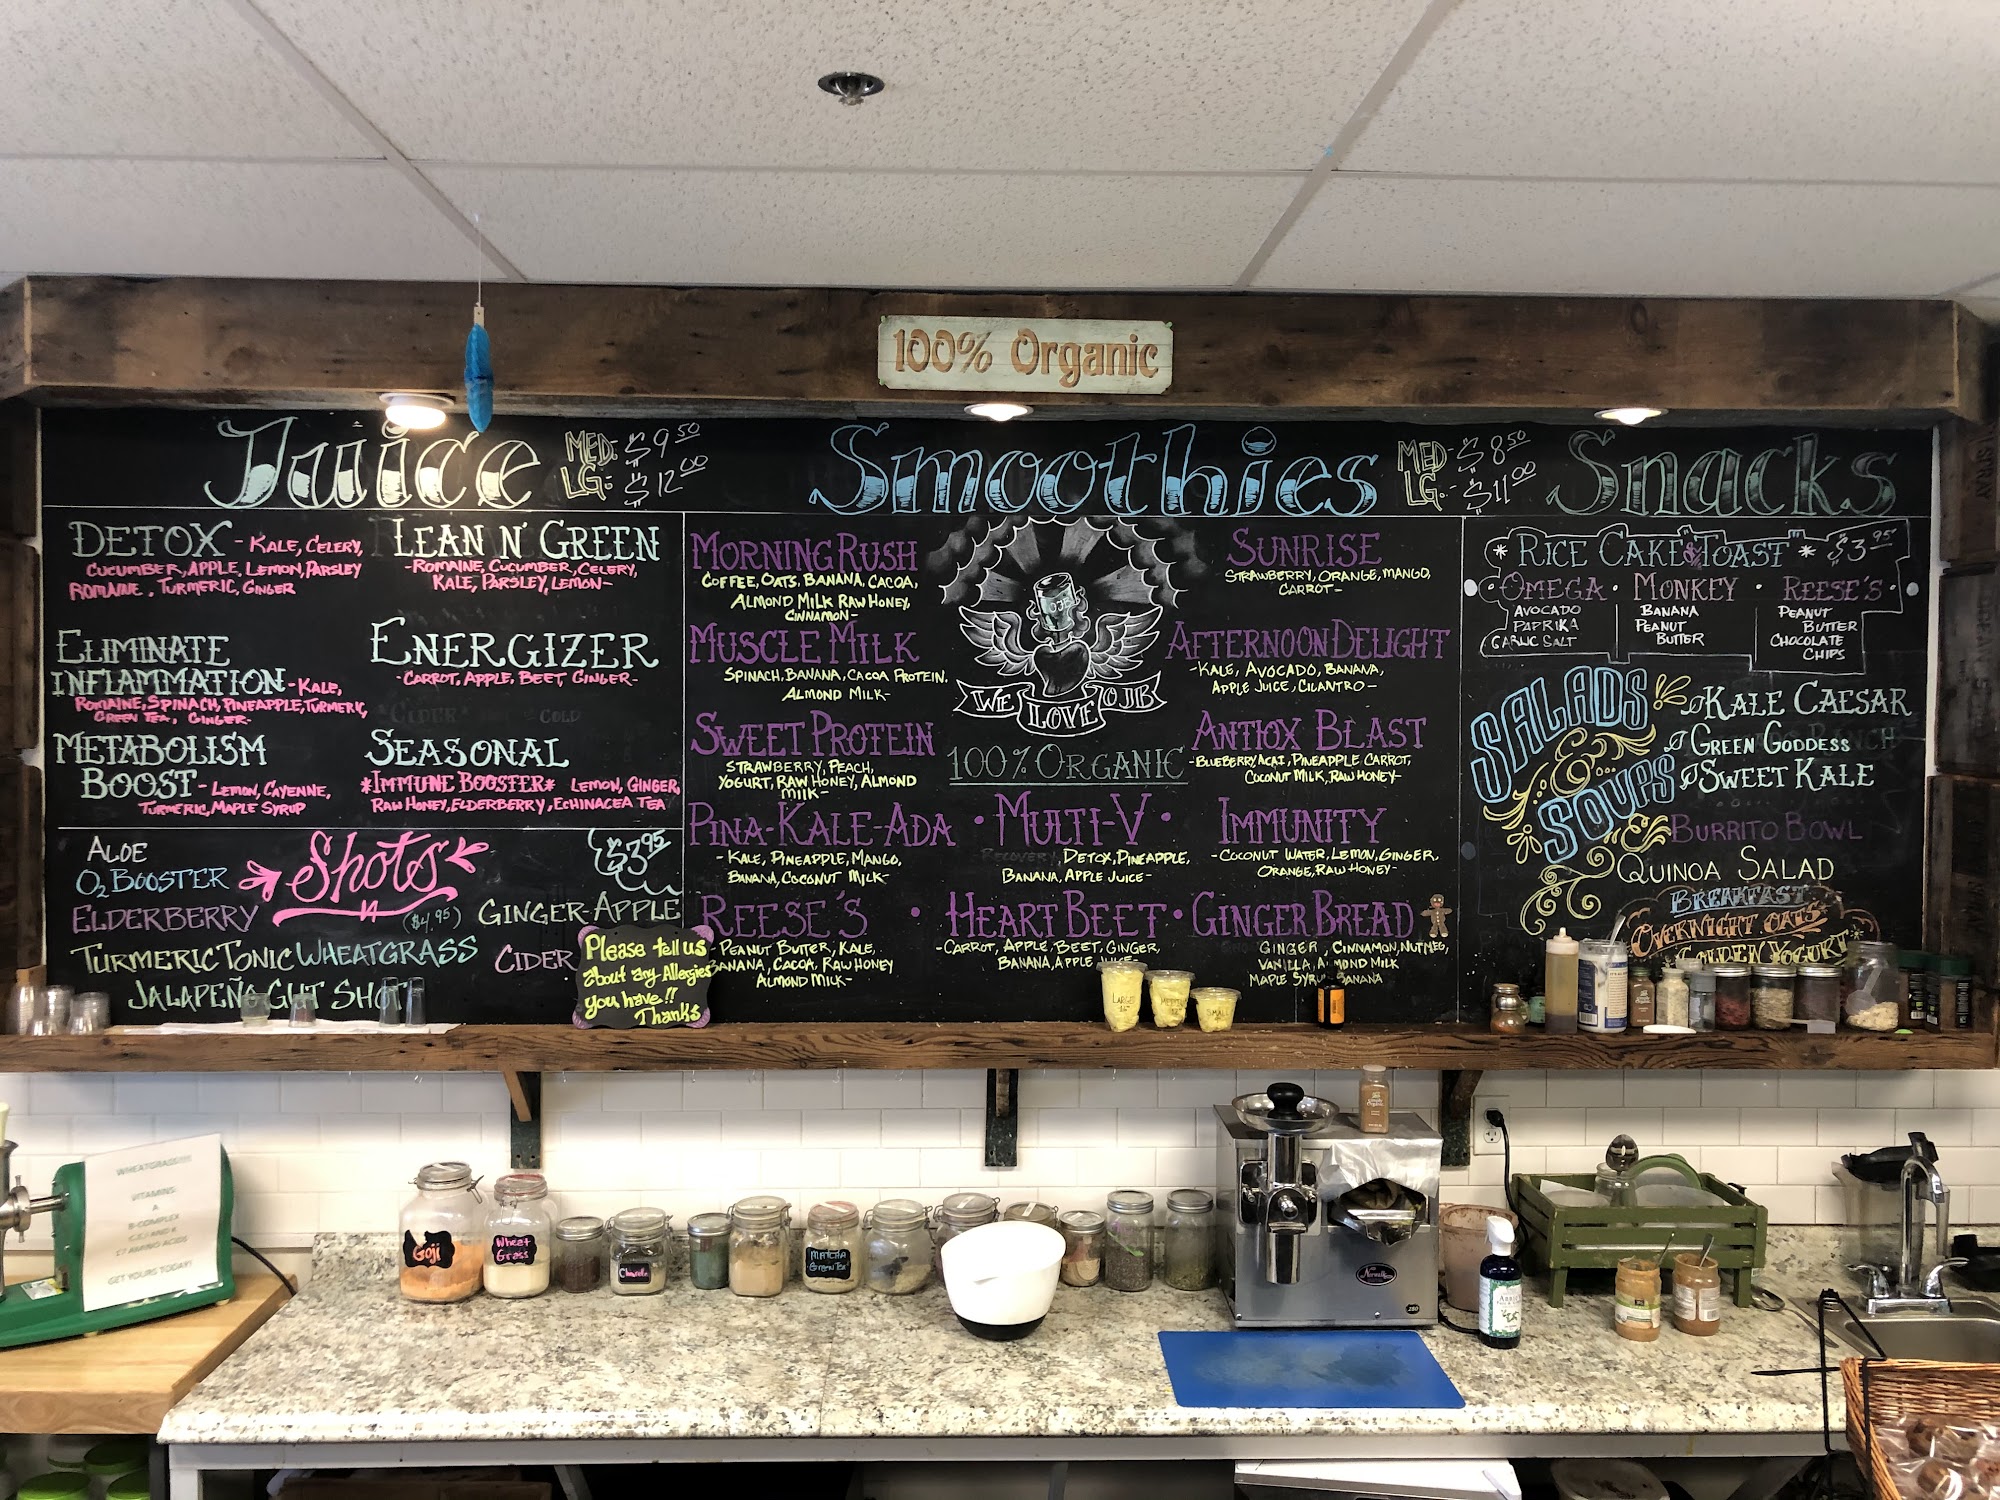 100% Organic
Juice
MED: $9.50
LG: $12.00
DETOX - KALE, CELERY,
CUCUMBER, APPLE, LEMON, PARSLEY
ROMAINE, TURMERIC, GINGER
LEAN N' GREEN
-ROMAINE, CUCUMBER, CELERY,
KALE, PARSLEY, LEMON-
ELIMINATE
INFLAMMATION - KALE,
ROMAINE, SPINACH, PINEAPPLE, TURMERIC,
GREEN TEA, GINGER-
ENERGIZER
-CARROT, APPLE, BEET, GINGER-
*CIDER* COLD
METABOLISM
BOOST - LEMON, CAYENNE,
TURMERIC, MAPLE SYRUP
SEASONAL
*IMMUNE BOOSTER* LEMON, GINGER,
RAW HONEY, ELDERBERRY, ECHINACEA TEA
Shots
$3.95
ALOE
O2 BOOSTER
ELDERBERRY
TURMERIC TONIC
WHEATGRASS
($4.95)
GINGER-APPLE
CIDER
JALAPEÑO GUT SHOT
Please tell us
about any Allergies
you have!!
Thanks
Smoothies
MED- $8.50
LG.- $11.00
MORNING RUSH
COFFEE, OATS, BANANA, CACOA,
ALMOND MILK RAW HONEY,
CINNAMON-
MUSCLE MILK
SPINACH, BANANA, CACOA PROTEIN,
ALMOND MILK-
SWEET PROTEIN
STRAWBERRY, PEACH,
YOGURT, RAW HONEY, ALMOND
MILK-
PINA-KALE-ADA
-KALE, PINEAPPLE, MANGO,
BANANA, COCONUT MILK-
REESE'S
PEANUT BUTTER, KALE,
BANANA, CACOA, RAW HONEY
ALMOND MILK-
OJB
WE LOVE OJB
100% ORGANIC
• MULTI-V •
RECOVERY, DETOX, PINEAPPLE,
BANANA, APPLE JUICE-
• HEART BEET •
-CARROT, APPLE, BEET, GINGER,
BANANA, APPLE JUICE-
SUNRISE
STRAWBERRY, ORANGE, MANGO,
CARROT-
AFTERNOON DELIGHT
-KALE, AVOCADO, BANANA,
APPLE JUICE, CILANTRO-
ANTIOX BLAST
-BLUEBERRY, ACAI, PINEAPPLE CARROT,
COCONUT MILK, RAW HONEY-
IMMUNITY
-COCONUT WATER, LEMON, GINGER,
ORANGE, RAW HONEY-
GINGER BREAD
GINGER, CINNAMON, NUTMEG,
VANILLA, ALMOND MILK
MAPLE SYRUP BANANA
LARGE
MEDIUM
SMALL
Snacks
* RICE CAKE & "TOAST" * $3.95
• OMEGA • MONKEY • REESE'S •
AVOCADO
PAPRIKA
GARLIC SALT
BANANA
PEANUT
BUTTER
PEANUT
BUTTER
CHOCOLATE
CHIPS
SALADS
&
SOUPS
KALE CAESAR
GREEN GODDESS
SWEET KALE
BURRITO BOWL
QUINOA SALAD
BREAKFAST
OVERNIGHT OATS
GOLDEN YOGURT
WHEATGRASS!!!!
VITAMINS:
A
B-COMPLEX
C,E,I AND K
17 AMINO ACIDS
GET YOURS TODAY!
Goji
Wheat
Grass
Chlorella
MATCHA
GREEN TEA
Norwalk
280